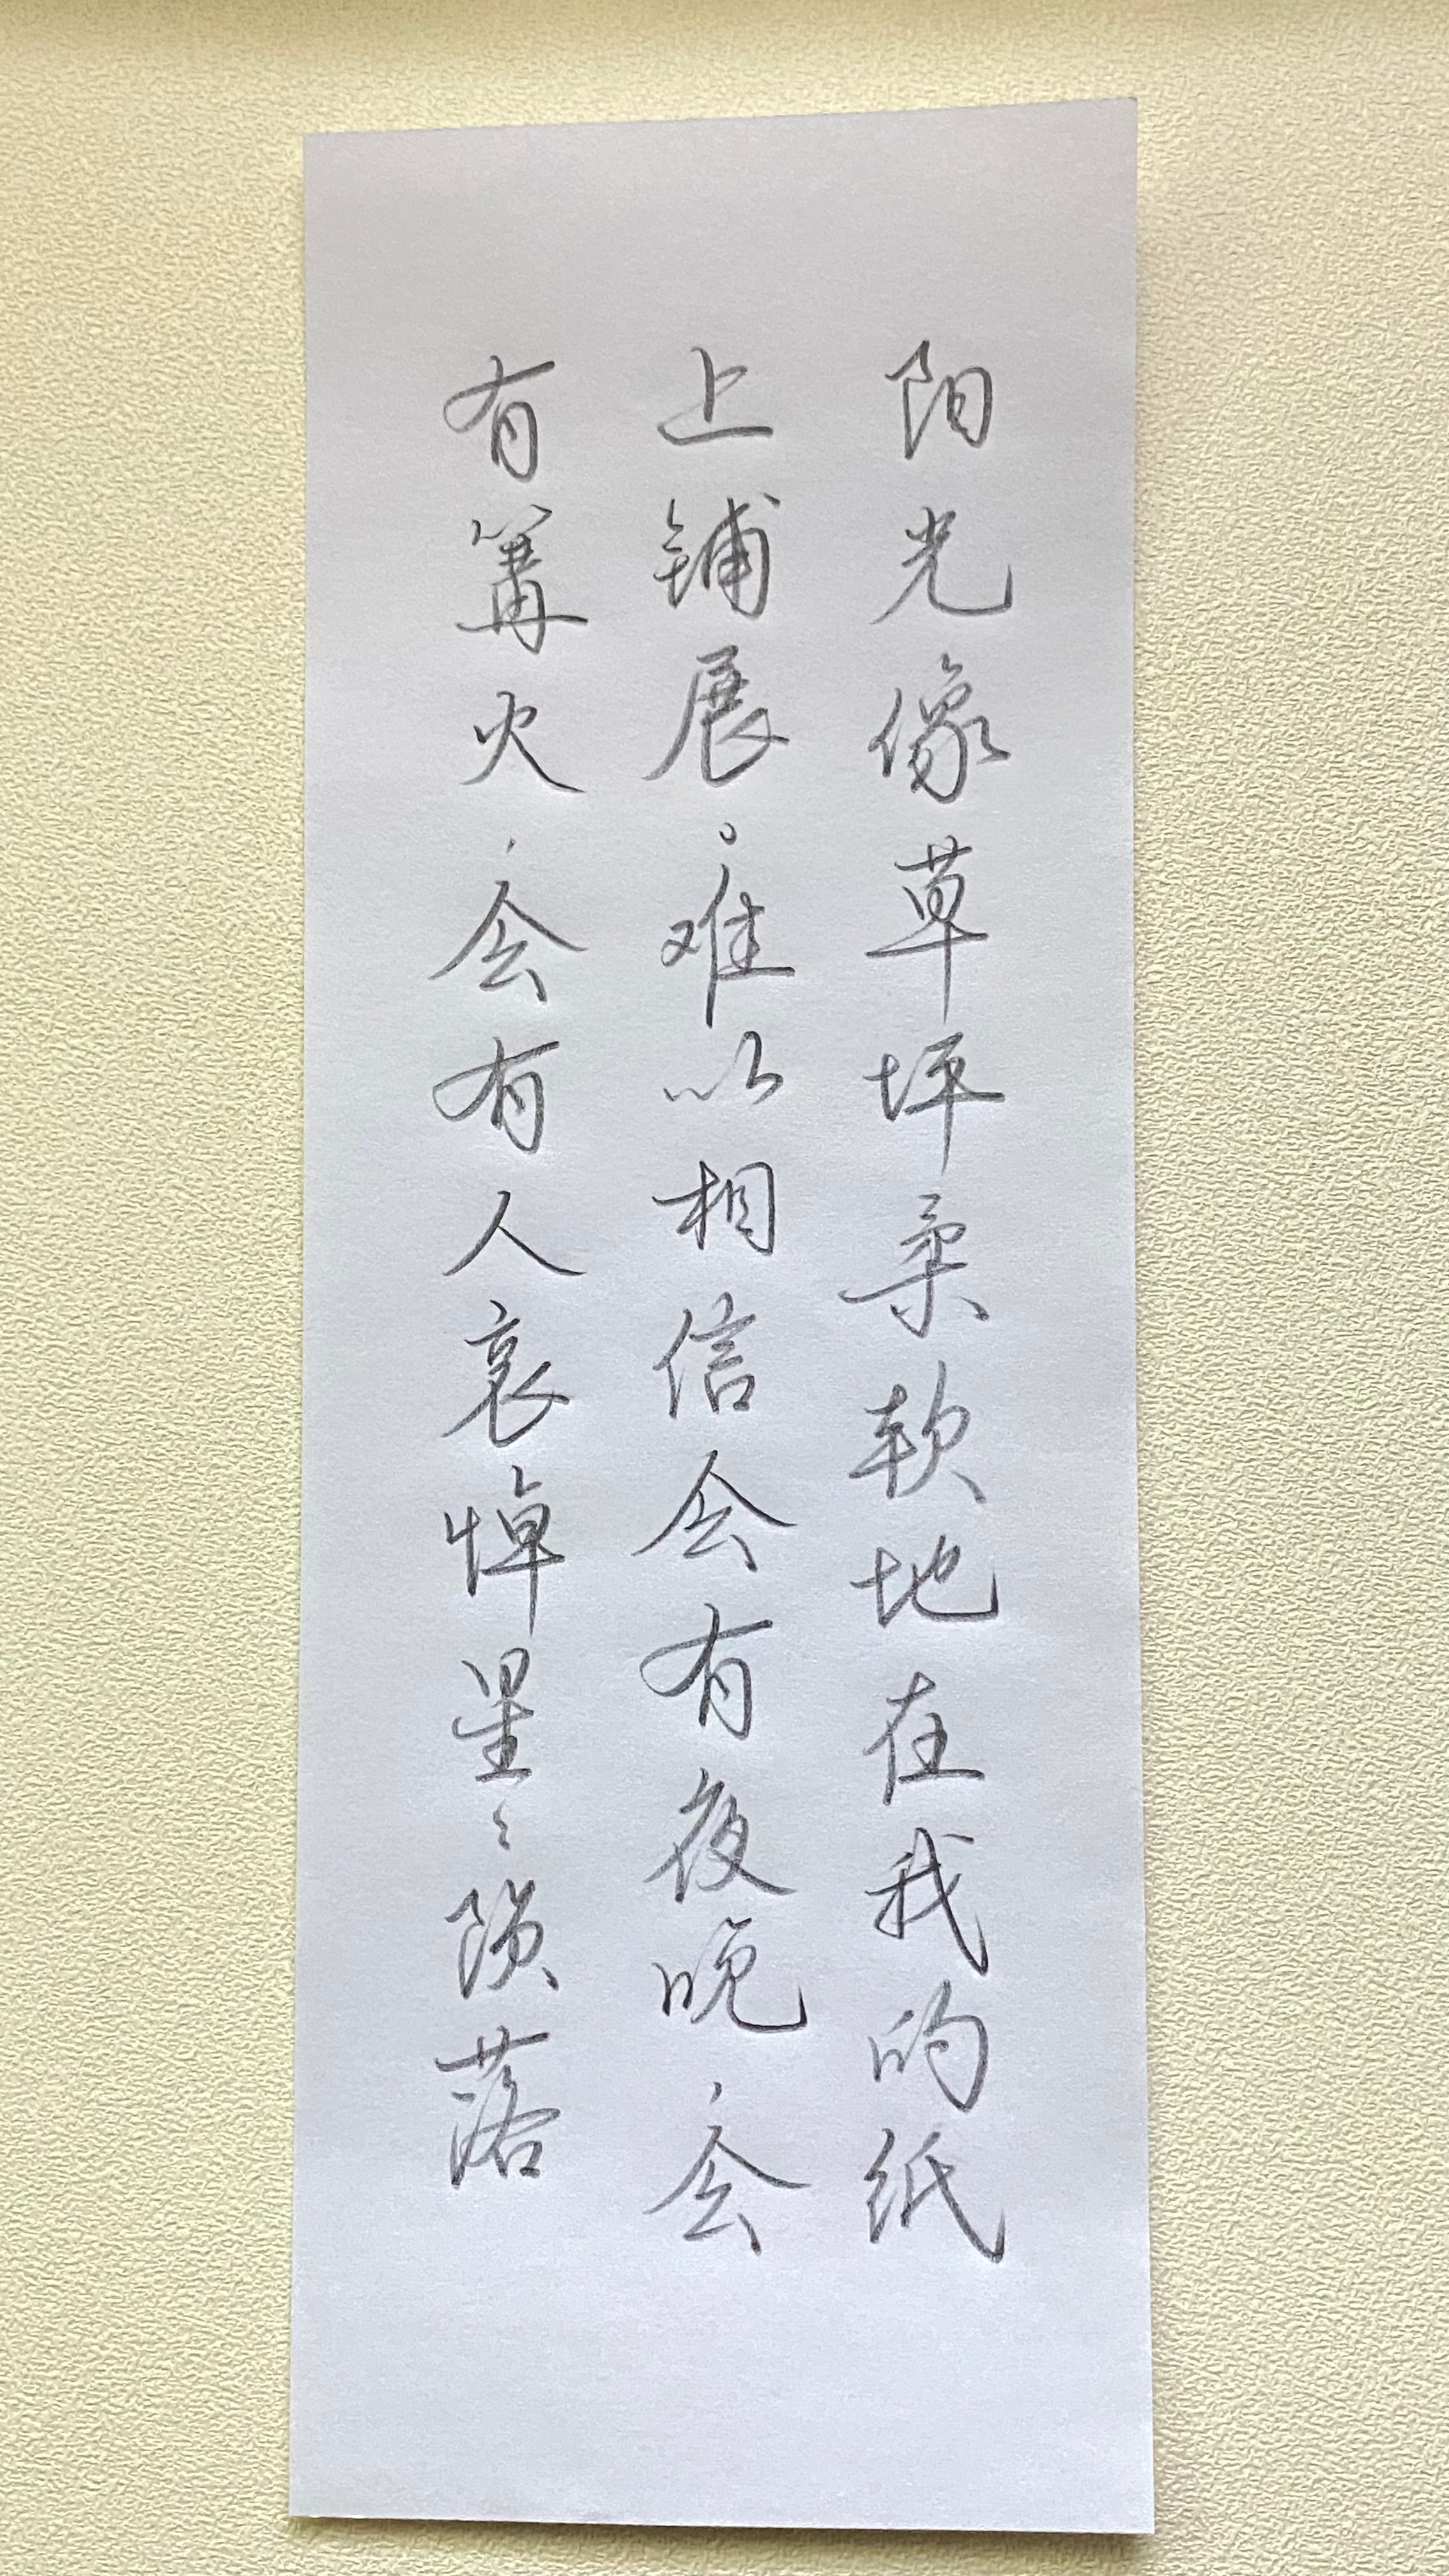 阳光像草坪柔软地在我的纸
上铺展。难以相信会有夜晚，会
有篝火，会有人哀悼星々陨落